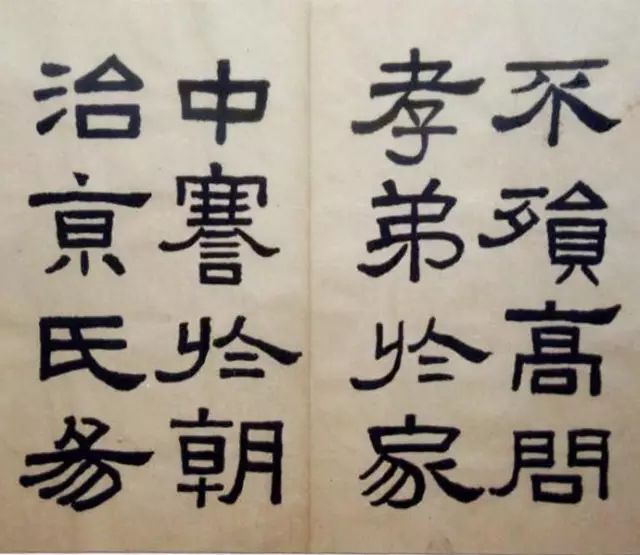 不殞高問
孝弟於家
中謇於朝
治亰氏易